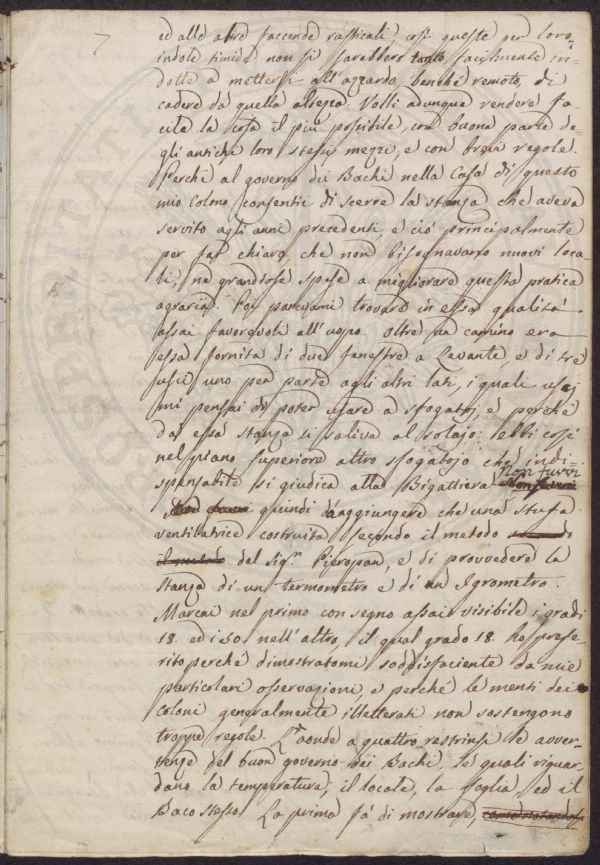 7
ed alle altre faccende rusticali, così queste per loro
indole timida non si sarebbero tanto facilmente in-
dotte a mettersi all'azzardo, benchè remoto, di
cadere da quella altezza. Volli adunque rendere fa-
cile la cosa il più possibile, con buona parte de-
gli antichi loro stessi mezzi, e con brevi regole.
Perchè al governo dei Bachi nella Casa di questo
mio Colono consentii di scerre la stanza che aveva
servito agli anni precedenti, e ciò principalmente
per far chiaro, che non bisognavano nuovi loca-
li, ne grandiose spese a migliorare questa pratica
agraria. Poi parevami trovare in essa qualità
assai favorevoli all'uopo. Oltre un camino era
essa fornita di due fenestre a Levante, e di tre
uscii uno per parte agli altri lati, i quali usci
mi pensai di poter usare a sfogatoj, e perchè
da essa stanza si saliva al solajo, ebbi così
nel piano superiore altro sfogatojo che indi-
spensabile si giudica alla Bigattiera. Non furvi
quindi d'aggiungere che una stufa
ventilatrice costruita secondo il metodo
del Sig.r Pieropan, e di provvedere la
stanza di un termometro e di un Igrometro.
Marcai nel primo con segno assai visibile i gradi
18. ed i 50 nell'altro, il qual grado 18. ho prefe-
rito perchè dimostratomi soddisfaciente da mie
particolari osservazioni, e perchè le menti dei
coloni generalmente illetterati non sostengono
troppe regole. Laonde a quattro restrinsi le avver-
tenze del buon governo dei Bachi, le quali riguar-
dano la temperatura, il locale, la foglia, ed il
Baco stesso. La prima fa di mostrare,